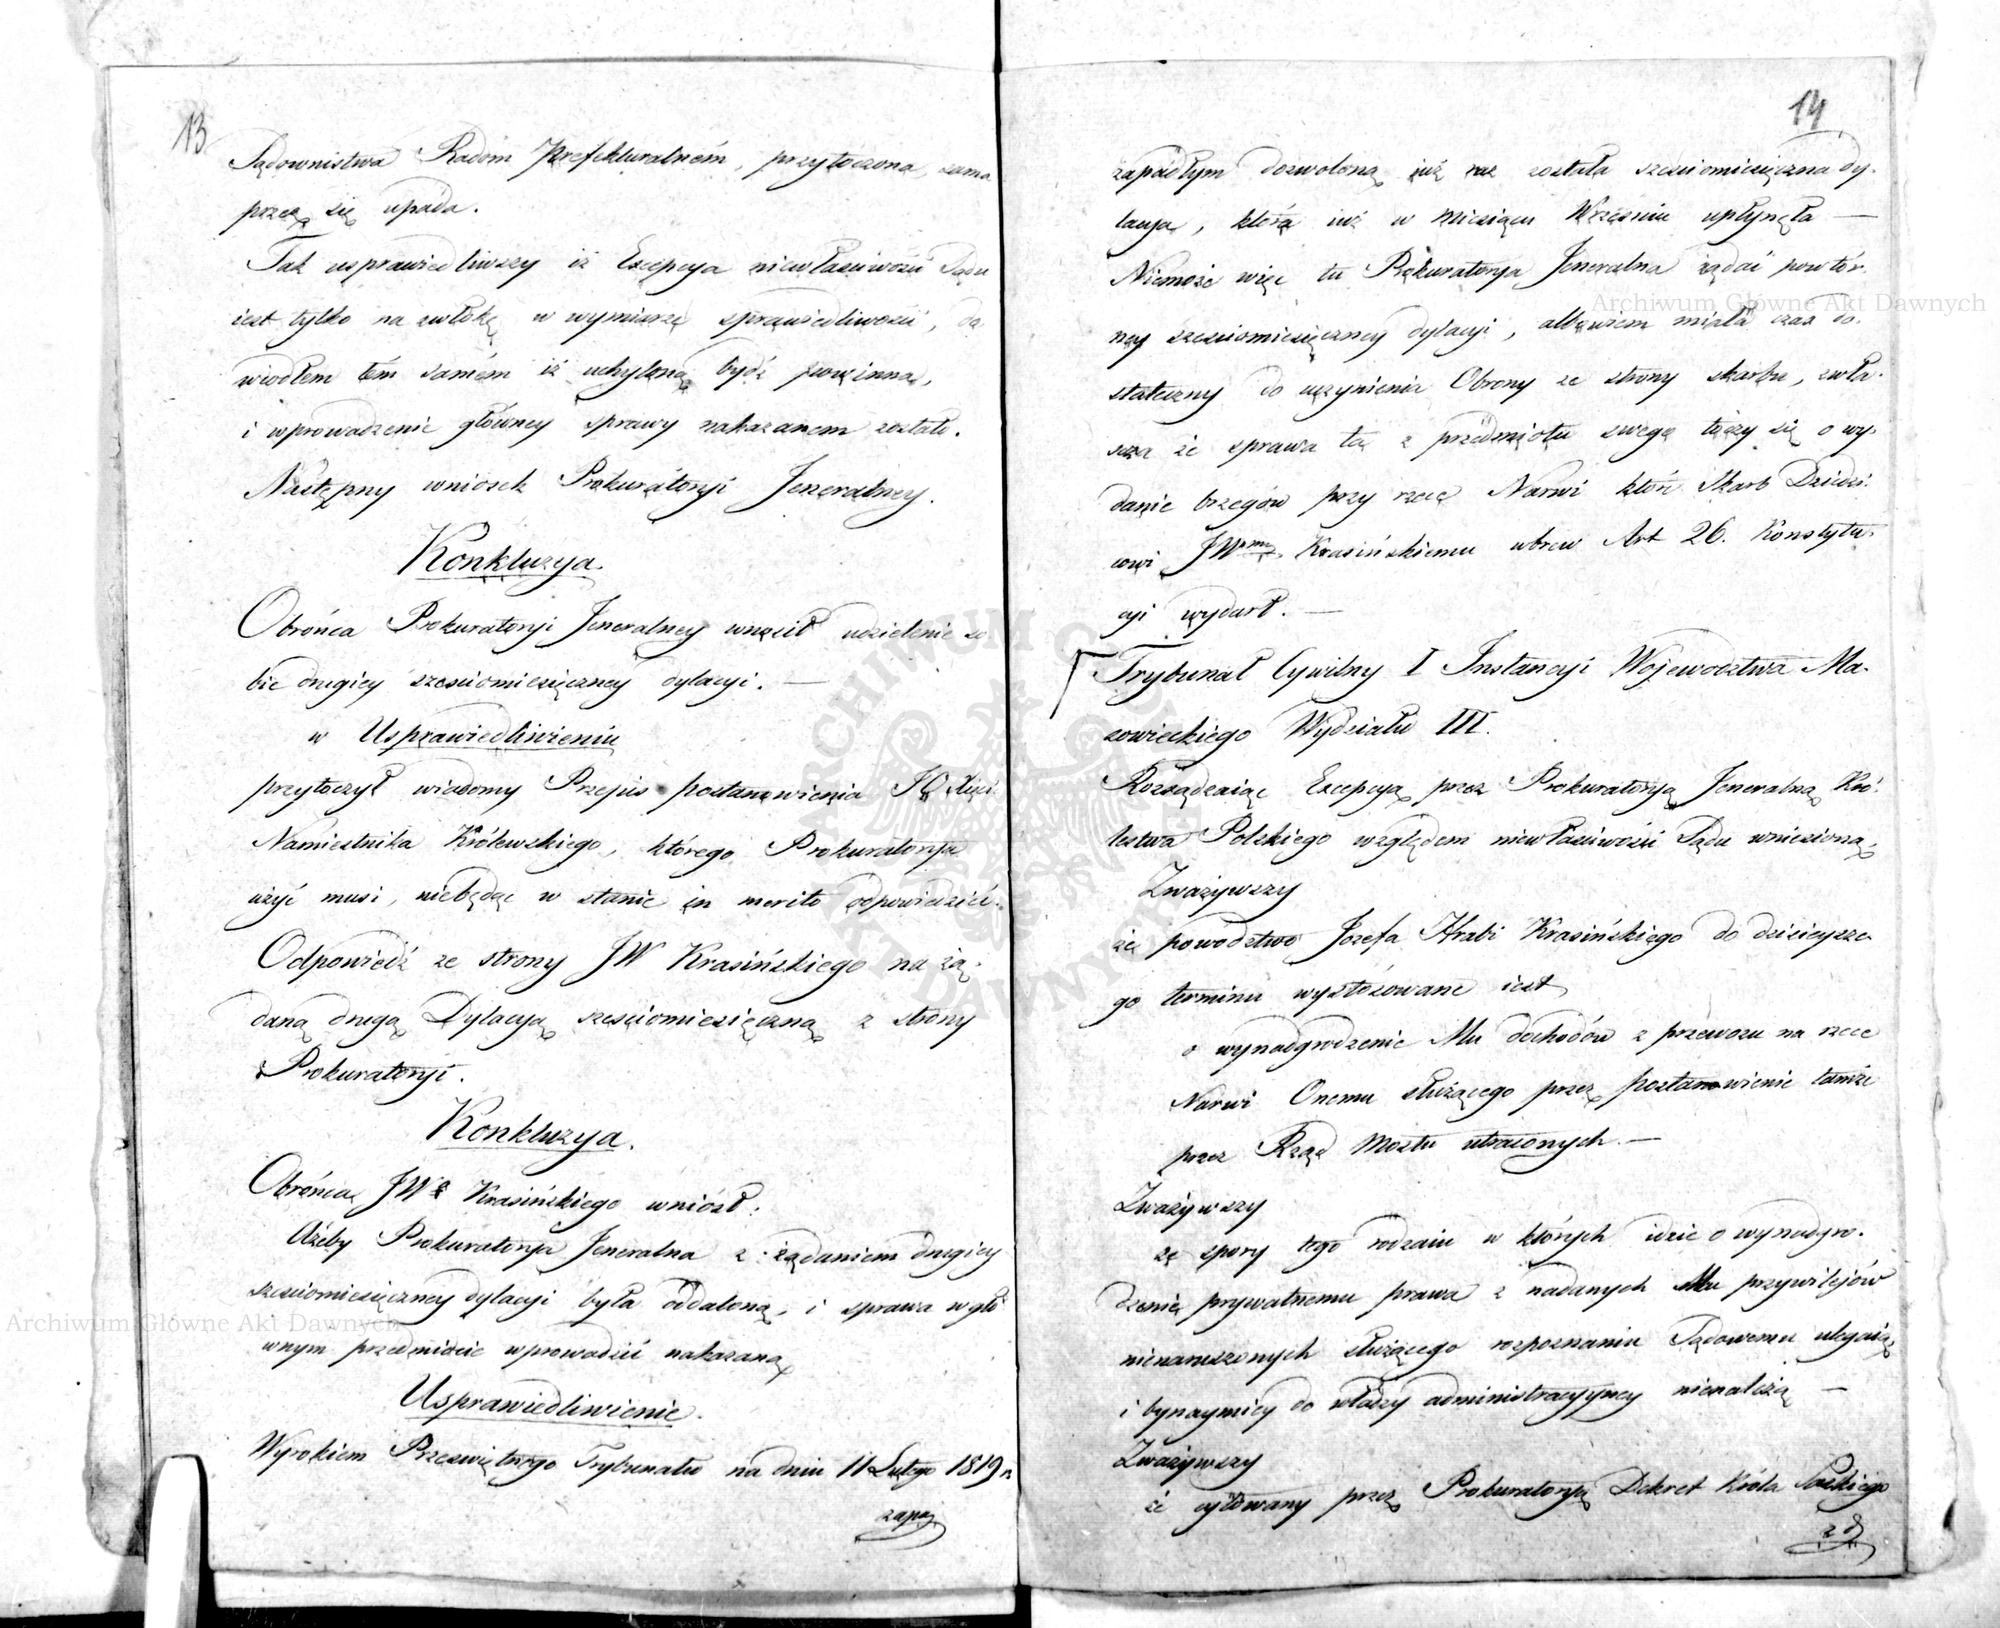 13
Sądownistwa Radom Prefekturalnem, przytoczona, sama
przez się upada.
Tak usprawiedliwszy iż Excepcya niewłaściwości Sądu
iest tylko na zwłokę w wymiarze sprawiedliwości, do
wiodłem tém samém iż uchyloną bydź powinna,
i wprowadzenie główney sprawy nakazanem zostało.
Następny wniosek Prokuratoryi Jeneralney.
Konkluzya.
Obrońca Prokuratoryi Jeneralney wnosił udzielenie so
bie drugiey sześciomiesięczney dylacyi. —
w Usprawiedliwieniu
przytoczył wiadomy Przepis postanowienia JO. Xięci
Namiestnika Królewskiego, którego Prokuratorya
użyć musi, niebędąc w stanie in merito odpowiedzieć.
Odpowiedź ze strony JW Krasińskiego na żą-
daną drugą Dylacyą sześciomiesięczną z strony
Prokuratoryi.
Konkluzya.
Obrońca JW Krasińskiego wniósł:
Ażeby Prokuratorya Jeneralna z żądaniem drugiey
sześciomiesięczney dylacyi była oddaloną, i sprawa w głó
wnym przedmiocie wprowadzić nakazaną
Usprawiedliwienie.
Wyrokiem Prześwietnego Trybunału na dniu 11 Lutego 1819 r.
zapa
14
zapadłym dozwoloną już raz została sześciomiesięczna dy-
lacya, która iuż w Miesiącu Wrześniu upłynęła —
Niemoże więc tu Prokuratorya Jeneralna żądać powtór-
ney sześciomiesięczney dylacyi, albowiem miała czas do-
stateczny do uczynienia Obrony ze strony skarbu, zwła-
szcza że sprawa ta z przedmiotu swego toczy się o wy-
danie brzegów przy rzece Narwi któri Skarb Dziedzi-
cowi JWmu Krasińskiemu wbrew Art 26. Konstytu-
cyi wydarł. —
Trybunał Cywilny I Instancyi Województwa Ma-
zowieckiego Wydziału III.
Rozsądzaiąc Excepcyą przez Prokuratoryą Jeneralną Kró-
lestwa Polskiego względem niewłaściwości Sądu wniesioną,
Zważywszy
że powodztwo Józefa Hrabi Krasińskiego do dzisieysze-
go terminu wystósowane iest,
o wynadgrodzenie Mu dochodów z przewozu na rzece
Narwi Onemu służącego przez postanowienie tamże
przez Rząd Mostu utraconych. —
Zważywszy
że spory tego rodzaiu w których idzie o wynadgro-
dzenie prywatnemu prawa z nadanych Mu przywilejów
nienaruszonych służącego rozpoznaniu Sądowemu ulegaią,
i bynaymiey do władzy administracyyney nienależą —
Zważywszy
że cytowany przez Prokuratoryą Dekret Króla Saskiego
z d
Archiwum Główne Akt Dawnych
Archiwum Główne Akt Dawnych
ARCHIWUM GŁÓWNE AKT DAWNYCH